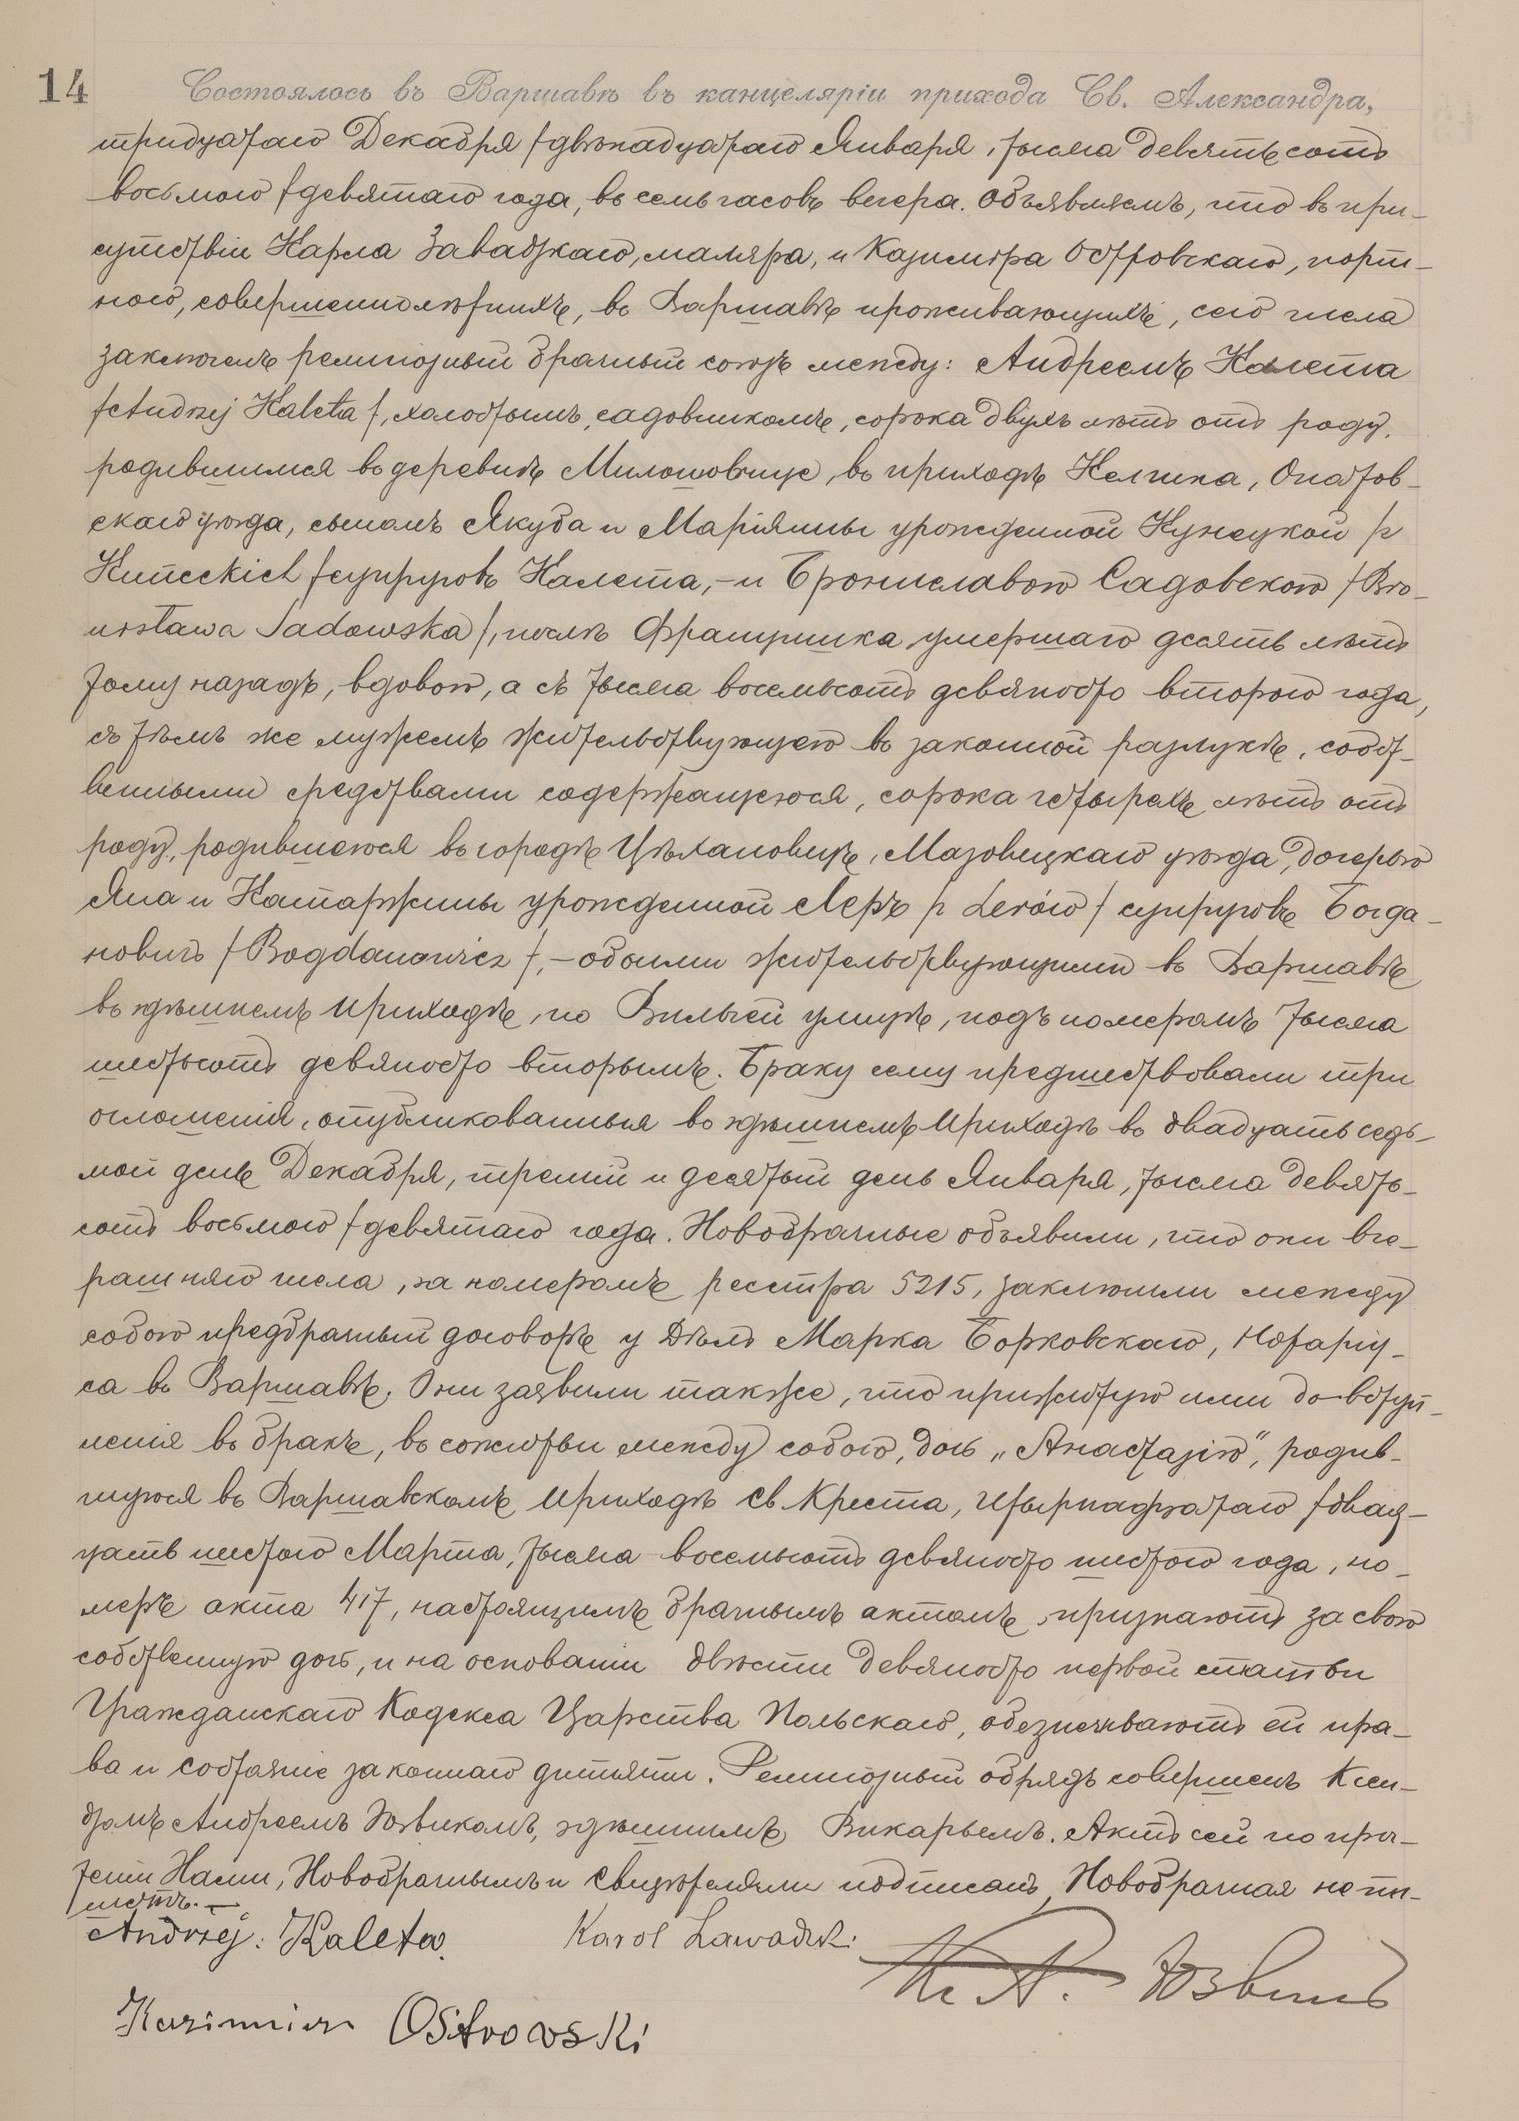 14
Состоялось въ Варшавѣ въ канцеляріи прихода Св. Александра,
тридцатаго Декабря /двѣнадцатаго Января, тысяча девятьсотъ
восьмого /девятаго года, въ семь часовъ вечера. Объявляемъ, что въ при-
сутствіи Карла Завадзкаго, маляра, и Казимѣра Островскаго, порт-
ного, совершеннолѣтнихъ, въ Варшавѣ проживающихъ, сего числа
заключенъ религіозный брачный союзъ между: Андреемъ Калета
/Andrzej Kaleta/, холостымъ, садовникомъ, сорока двухъ лѣтъ отъ роду,
родившимся въ деревнѣ Милошовице, въ приходѣ Келчина, Опатов-
скаго уѣзда, сыномъ Якуба и Маріянны урожденной Кунецкой /z
Kuneckich/ супруговъ Калета, - и Брониславою Садовскою /Bro-
nisława Sadowska/, послѣ Францишка умершаго десять лѣтъ
тому назадъ, вдовою, а съ тысяча восемьсотъ девяносто второго года,
съ тѣмъ же мужемъ жительствующею въ законной разлукѣ, собст-
венными средствами содержащеюся, сорока четырехъ лѣтъ отъ
роду, родившеюся въ городѣ Цѣхановцѣ, Мазовецкаго уѣзда, дочерью
Яна и Катаржины урожденной Леръ /z Lerów/ супруговъ Богда-
новичъ /Bogdanowicz/, - обоими жительствующими въ Варшавѣ
въ здѣшнемъ приходѣ, по Вильчей улицѣ, подъ номеромъ тысяча
шестьсотъ девяносто вторымъ. Браку сему предшествовали три
оглашенія, опубликованныя въ здѣшнемъ приходѣ въ двадцать седь-
мой день Декабря, третій и десятый день Января, тысяча девять-
сотъ восьмого /девятаго года. Новобрачные объявили, что они вче-
рашняго числа, за номеромъ реестра 5215, заключили между
собою предбрачный договоръ у Дѣлъ Марка Борковскаго, Нотаріу-
са въ Варшавѣ. Они заявили также, что прижитую ими до вступ-
ленія въ бракъ, въ сожитьи между собою, дочь „Анастазію", родив-
шуюся въ Варшавскомъ приходѣ Св. Креста, четырнадцатаго /двад-
цать шестого Марта, тысяча восемьсотъ девяносто шестого года, но-
меръ акта 417, настоящимъ брачнымъ актомъ, признаютъ за свою
собственную дочь, и на основаніи двѣсти девяносто первой статьи
Гражданскаго Кодекса Царства Польскаго, обезпечиваютъ ей пра-
ва и состояніе законнаго дитяти. Религіозный обрядъ совершенъ Ксен-
дзомъ Андреемъ Юзвикомъ, здѣшнимъ Викарьемъ. Актъ сей по проч-
теніи Нами, Новобрачнымъ и свидѣтелями подписанъ, Новобрачная не пи-
шетъ. —
Andrzej: Kaleta. Karol Zawadzki.
Кс А. Юзвикъ
Kazimierz Ostrowski